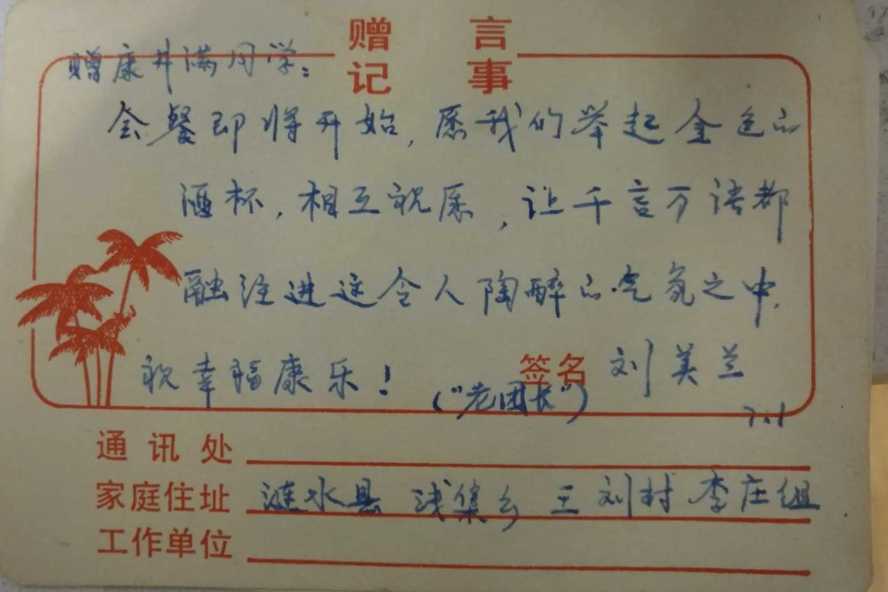 赠言
记事
赠康井满同学：
会餐即将开始，愿我们举起金色的
酒杯，相互祝愿，让千言万语都
融注进这令人陶醉的气氛之中.
祝幸福康乐！
签名 刘美兰
（“老团长”）
7.1
通讯处
家庭住址 涟水县 浅集乡 王刘村 李庄组
工作单位